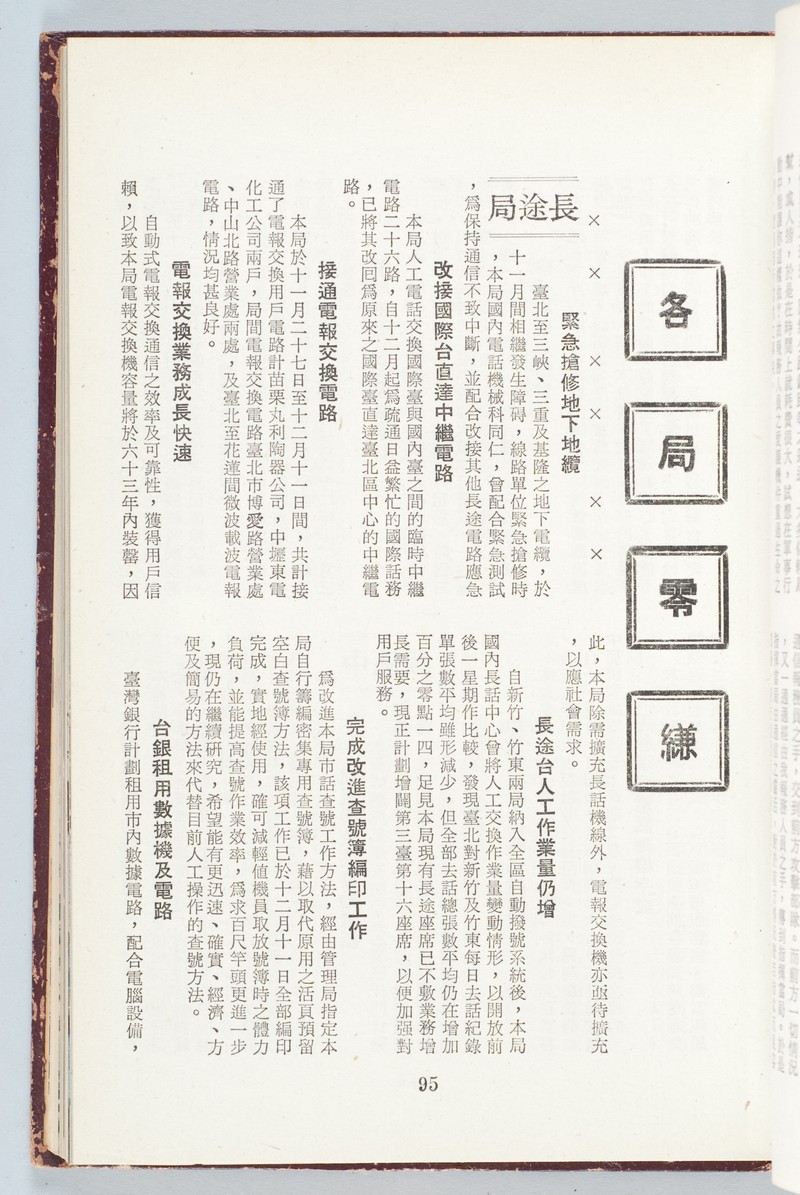 各局零縑
× × × × × ×
長途局
緊急搶修地下地纜
臺北至三峽、三重及基隆之地下電纜，於
十一月間相繼發生障碍，線路單位緊急搶修時
，本局國內電話機械科同仁，曾配合緊急測試
，爲保持通信不致中斷，並配合改接其他長途電路應急
改接國際台直達中繼電路
本局人工電話交換國際臺與國內臺之間的臨時中繼
電路二十六路，自十二月起爲疏通日益繁忙的國際話務
，已將其改囘爲原來之國際臺直達臺北區中心的中繼電
路。
接通電報交換電路
本局於十一月二十七日至十二月十一日間，共計接
通了電報交換用戶電路計苗栗丸利陶器公司，中壢東電
化工公司兩戶，局間電報交換電路臺北市博愛路營業處
、中山北路營業處兩處，及臺北至花蓮間微波載波電報
電路，情況均甚良好。
電報交換業務成長快速
自動式電報交換通信之效率及可靠性，獲得用戶信
賴，以致本局電報交換機容量將於六十三年內裝罄，因
此，本局除需擴充長話機線外，電報交換機亦亟待擴充
，以應社會需求。
長途台人工作業量仍增
自新竹、竹東兩局納入全區自動撥號系統後，本局
國內長話中心曾將人工交換作業量變動情形，以開放前
後一星期作比較，發現臺北對新竹及竹東每日去話紀錄
單張數平均雖形減少，但全部去話總張數平均仍在增加
百分之零點一四，足見本局現有長途座席已不敷業務增
長需要，現正計劃增闢第三臺第十六座席，以便加强對
用戶服務。
完成改進查號簿編印工作
爲改進本局市話查號工作方法，經由管理局指定本
局自行籌編密集專用查號簿，藉以取代原用之活頁預留
空白查號簿方法，該項工作已於十二月十一日全部編印
完成，實地經使用，確可減輕値機員取放號簿時之體力
負荷，並能提高查號作業效率，爲求百尺竿頭更進一步
，現仍在繼續研究，希望能有更迅速、確實、經濟、方
便及簡易的方法來代替目前人工操作的查號方法。
台銀租用數據機及電路
臺灣銀行計劃租用市內數據電路，配合電腦設備，
95